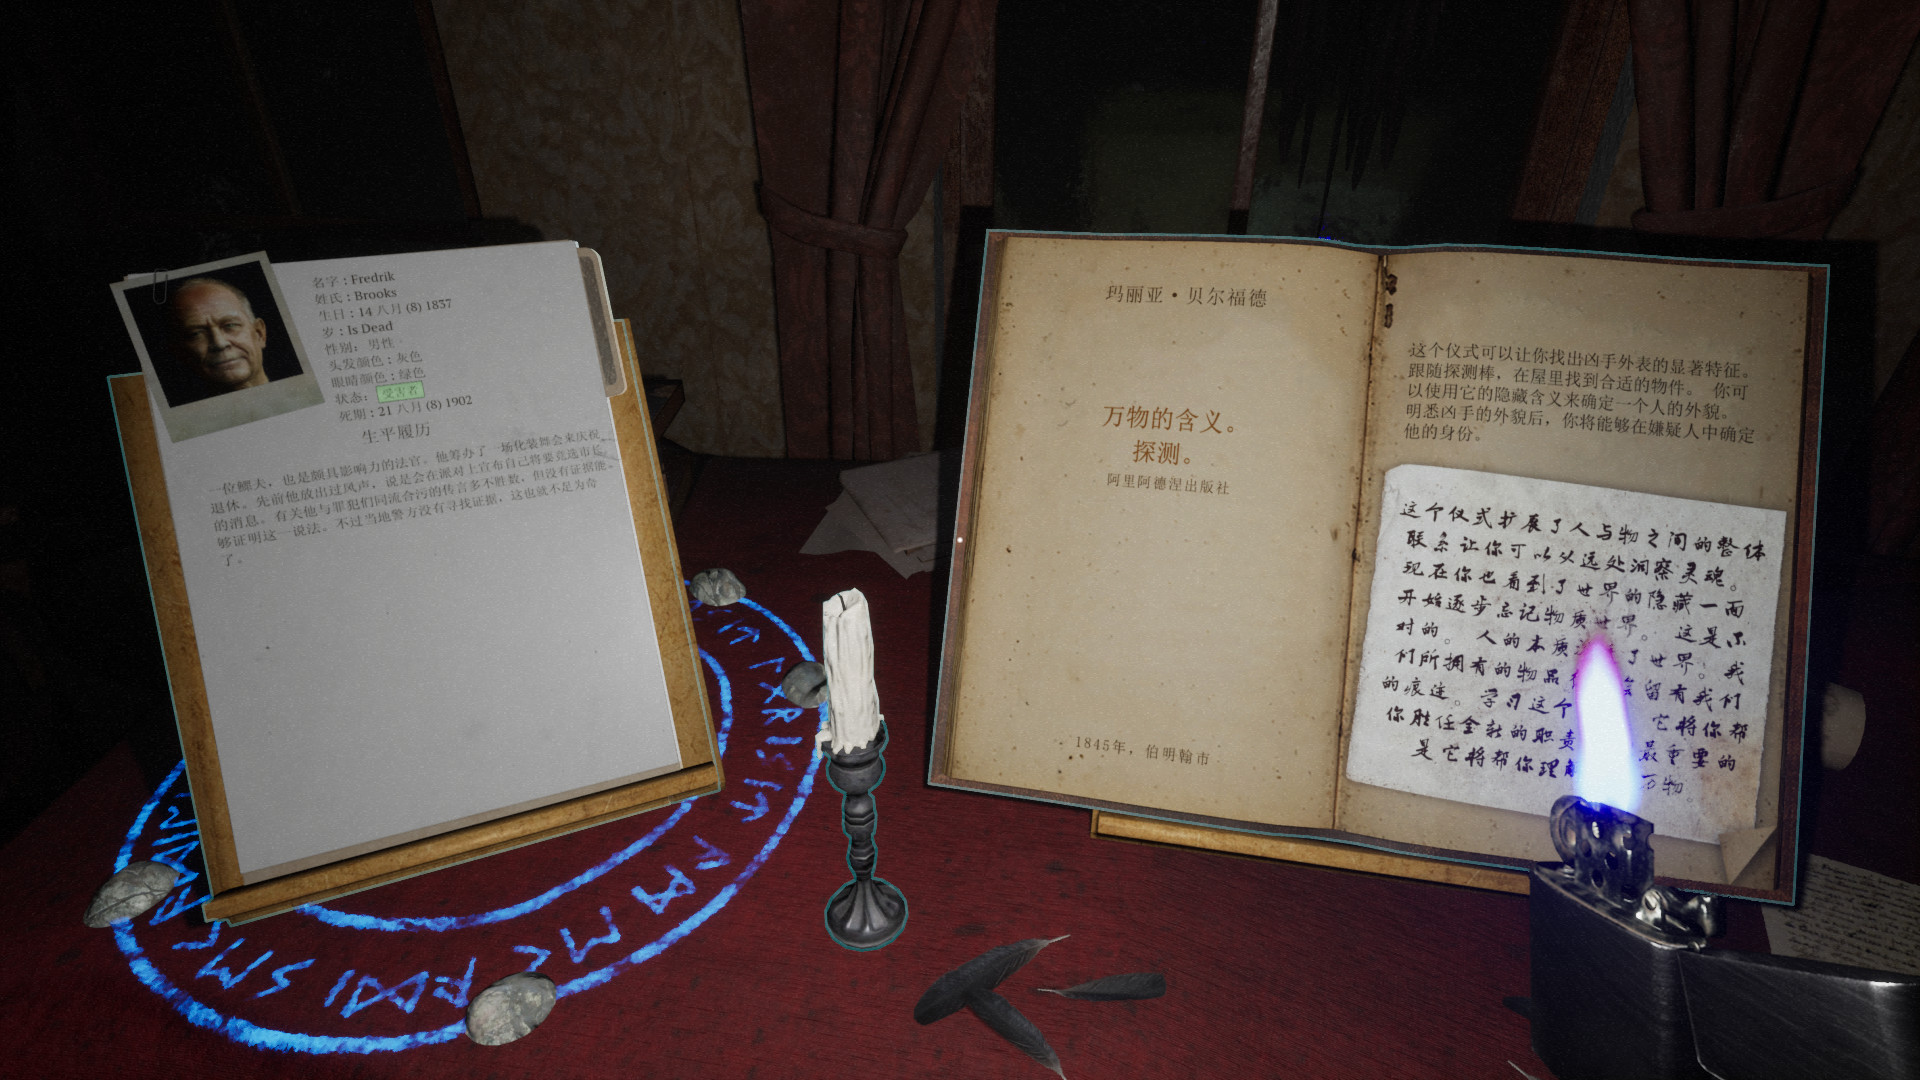 名字：Fredrik
姓氏：Brooks
生日：14 八月 (8) 1837
岁：Is Dead
性别：男性
头发颜色：灰色
眼睛颜色：绿色
状态：受害者
死期：21 八月 (8) 1902
生平履历
一位鳏夫，也是颇具影响力的法官。他筹办了一场化装舞会来庆祝
退休。先前他放出过风声，说是会在派对上宣布自己将要竞选市长
的消息。有关他与罪犯们同流合污的传言多不胜数，但没有证据能
够证明这一说法。不过当地警方没有寻找证据，这也就不足为奇
了。
玛丽亚·贝尔福德
万物的含义。
探测。
阿里阿德涅出版社
1845年，伯明翰市
这个仪式可以让你找出凶手外表的显著特征。
跟随探测棒，在屋里找到合适的物件。 你可
以使用它的隐藏含义来确定一个人的外貌。
明悉凶手的外貌后，你将能够在嫌疑人中确定
他的身份。
这个仪式扩展了人与物之间的整体
联系让你可以从远处洞察灵魂。
现在你也看到了世界的隐藏一面
开始逐步忘记物质世界。 这是
对的。 人的本质 了世界。 我
们所拥有的物品 留有我们
的痕迹。 学习这个 它将你帮
你胜任全新的职责 最重要的
是它将帮你理解 万物。